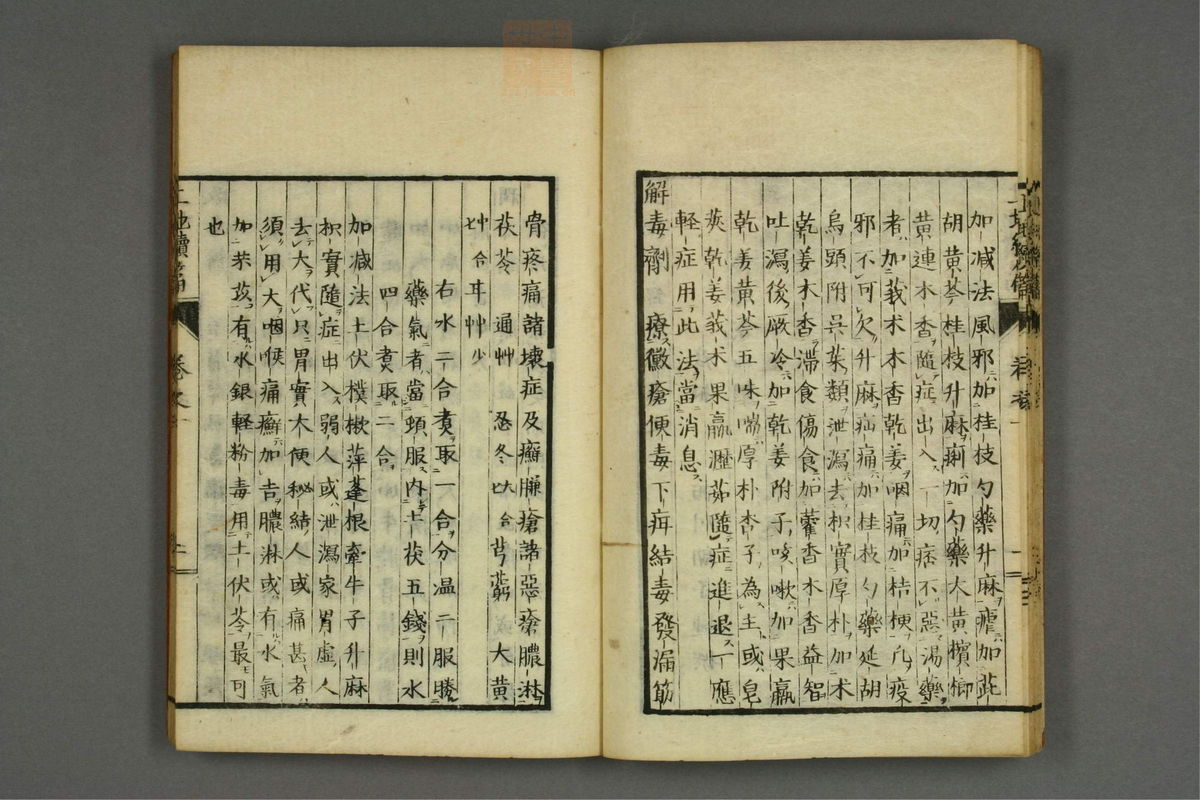 加减法風邪加桂枝勺藥升麻瘧加茈
胡黄芩桂枝升麻痢加勺藥大黄檳榔
黄連木香隨症出入一切痞不惡湯藥
者加莪术木香乾姜咽痛加桔梗凢疫
邪不可欠升麻疝痛加桂枝勺藥延胡
烏頭附吳茱類泄瀉去枳實厚朴加术
乾姜木香滞食傷食加藿香木香益智
吐瀉後厥冷加乾姜附子咳嗽加果蠃
乾姜黄芩五味喘厚朴杏子為主或皂
莢乾姜莪术果蠃瀝茹隨症進退一應
軽症用此法當消息
解毒劑 療黴瘡便毒下疳結毒發漏筋
骨疼痛諸壊症及癬臁瘡諸惡瘡膿淋
茯苓 通艸 忍冬 大 合 芎藭 大黄
七 合 耳 艸 少
右水二合煑取一合分温二服勝
藥氣者當頓服内土茯五錢則水
四合煑取二合
加减法土伏樸樕萍蓬根牽牛子升麻
枳實隨症出入弱人或泄瀉家胃虚人
去大代只胃實大便秘結人或痛甚者
須用大咽喉痛癬加吉膿淋或有水氣
加芣苡有水銀軽粉毒用土伏苓最可
也